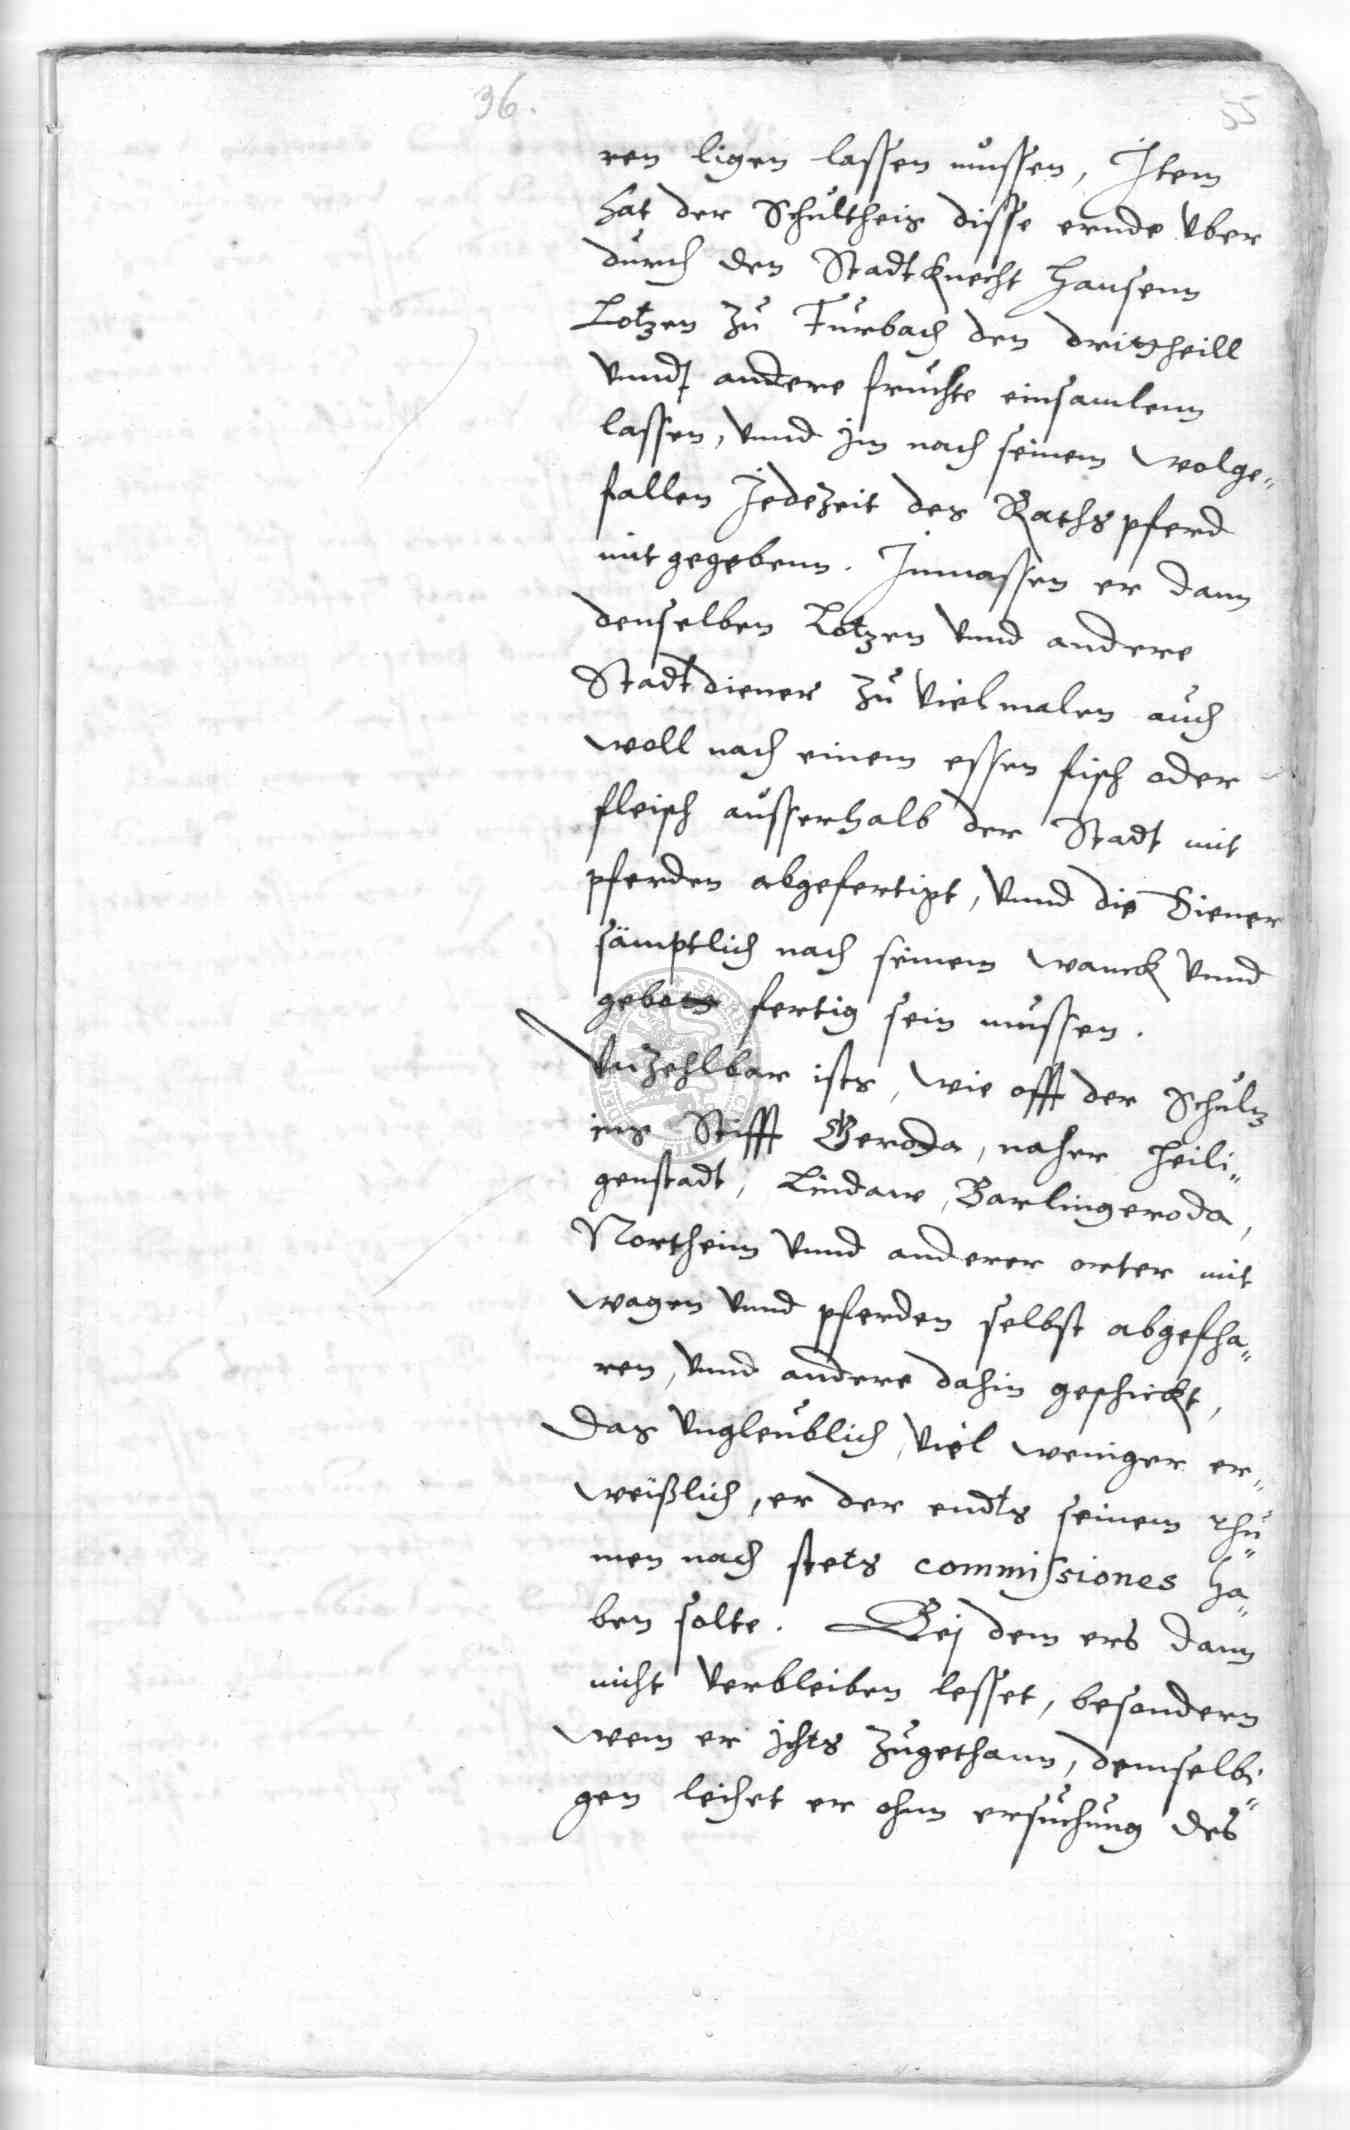 36.
55
ren ligen lassen mussen, Item
hat der Schultheis disse ernde vber
durch den Stadtknecht Hansenn
Lotzen zu Furbach den dritztheill
vnndt andere fruchte einsamlenn
lassen, vnnd jm nach seinem wolge„
fallen Jedezeit des Raths pferd
mit gegebenn. Inmassen er dann
denselben Lotzen vnnd andere
Stadtdiener zu vielmalen auch
woll nach einem essen fisch oder
fleisch ausserhalb der Stadt mit
pferden abgefertigt, vnnd die Diener
sämptlich nach seinem wanck vnnd
gebots fertig sein mussen.
Vnzehlbar ists, wie offt der Schultz
ins Stifft Geroda, naher Heili„
genstadt, Lindaw, Barlingeroda,
Northeim vnnd anderer orter mit
wagen vnnd pferden selbst abgefha„
ren, vnnd andere dahin geschickt,
Das vngleublich, viel weniger er„
weißlich, er der endts seinem rhu„
men nach stets commissiones ha„
ben solte. Bej dem ers dann
nicht verbleiben lesset, besondern
wem er jchts zugethann, demselbi„
gen leihet er ohnn ersuchung des